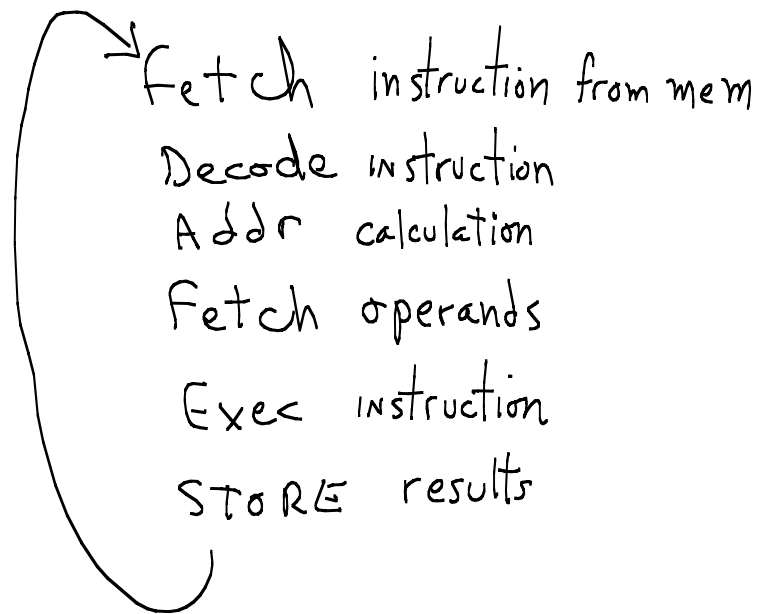 Fetch instruction from mem
Decode instruction
Addr calculation
Fetch operands
Exec instruction
STORE results